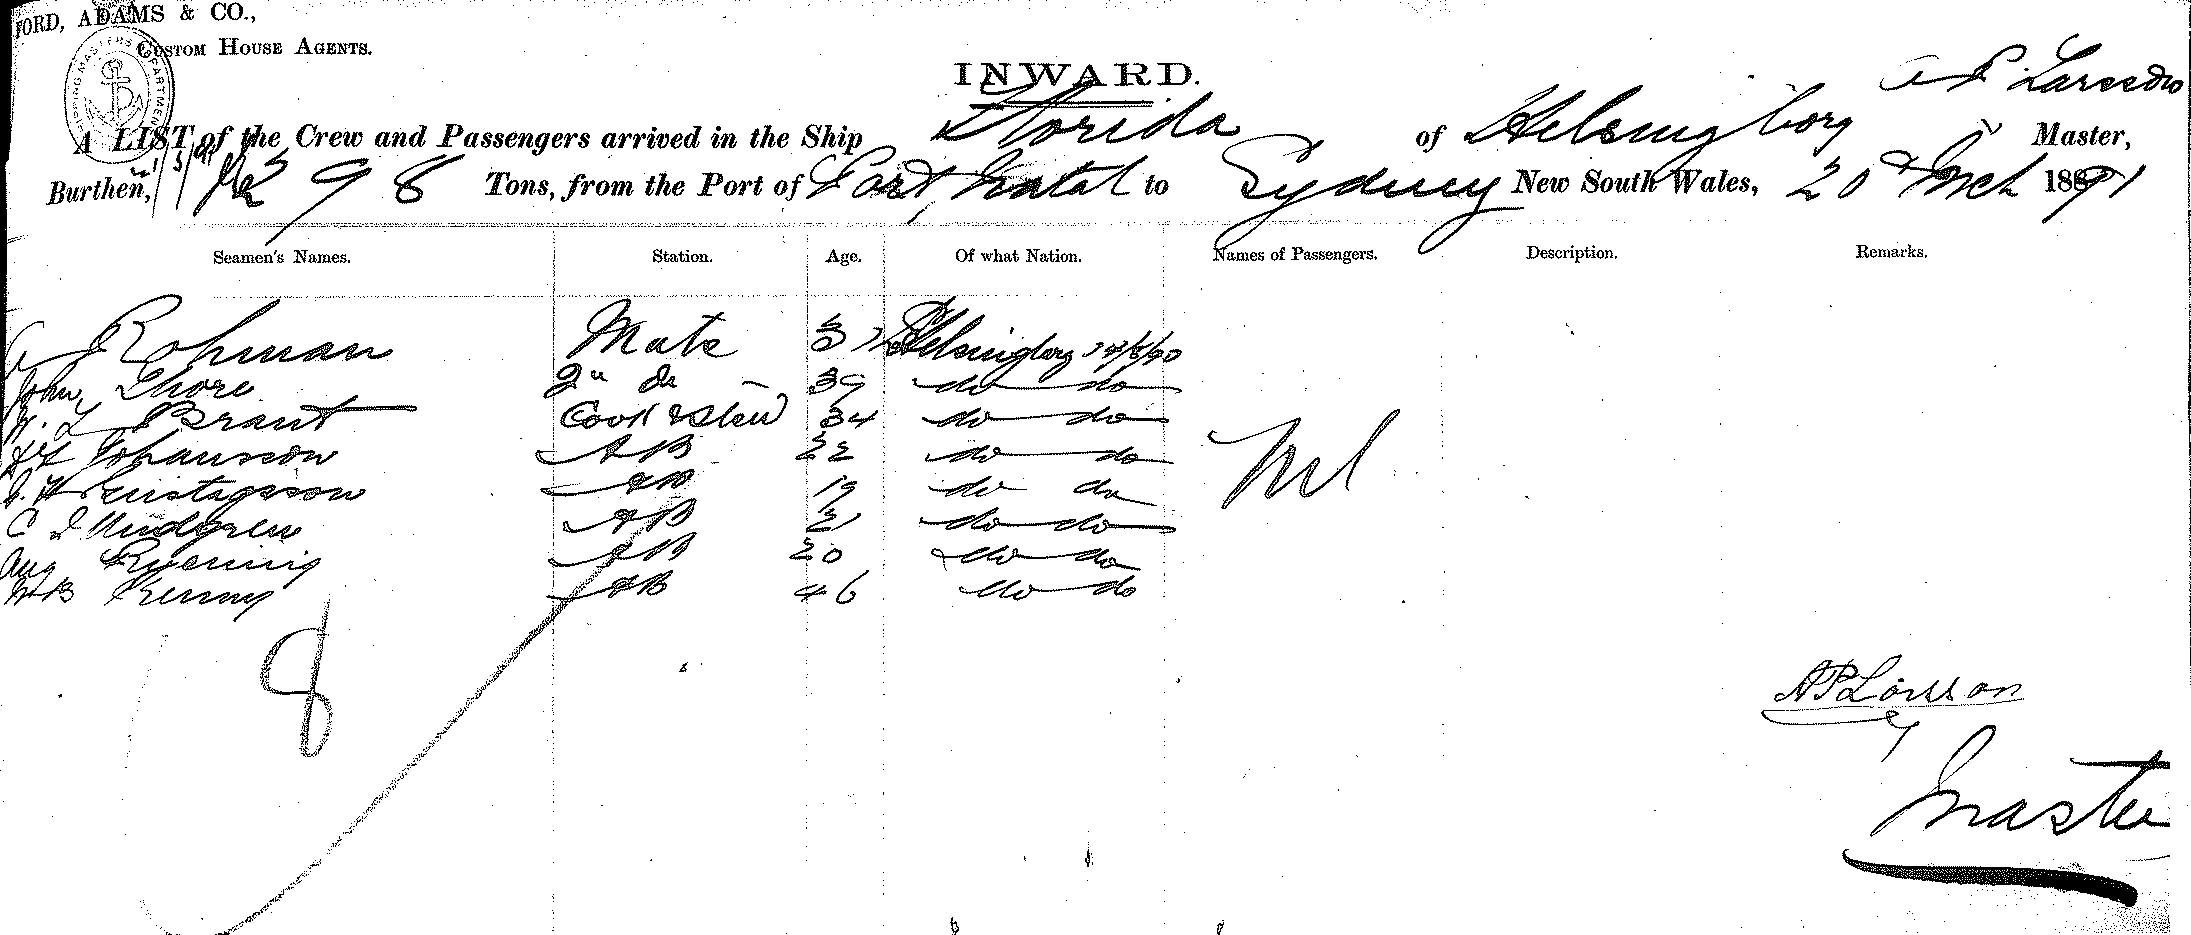 FORD, ADAMS & CO.,
CUSTOM HOUSE AGENTS.
INWARD.
A P Larsson
A LIST of the Crew and Passengers arrived in the Ship Florida of Helsingborg Master,
Burthen, 398 Tons, from the Port of Port Natal to Sydney New South Wales, 20th Mch 1891
Seamen's Names. Station. Age. Of what Nation. Names of Passengers. Description. Remarks.
Rohman Mate Helsingborg
John Thore 2nd do 39 do do
Brant Cook & Stew 34 do do
Johansson AB 22 do do
Gustafsson AB 19 do do
C Lindgren AB 21 do do
Aug AB 20 do do
AB 46 do do
Nil
8
A P Larsson
Master